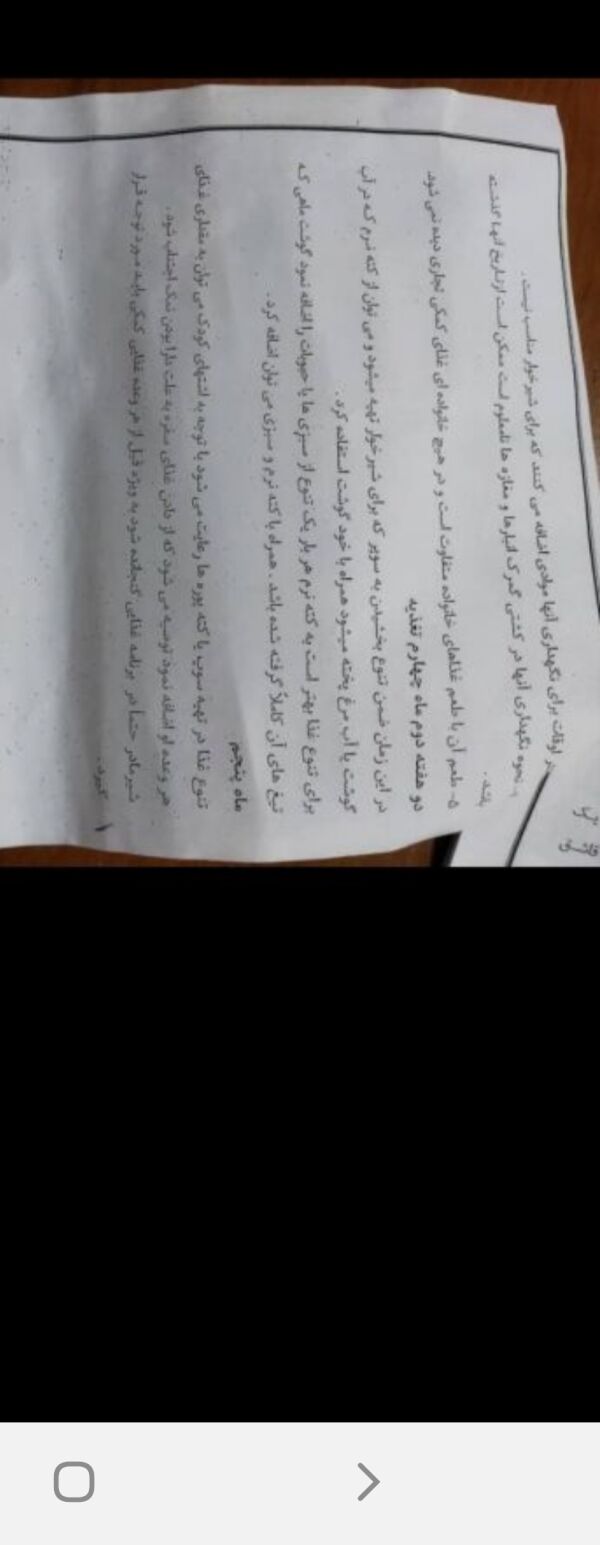 اوقات برای نگهداری آنها موادی اضافه می کنند که برای شیر خوار مناسب نیست.
نحوه نگهداری آنها در کشتی گمرک انبارها و مغازه ها نامعلوم است ممکن است از تاریخ آنها گذشته
باشد.
۵- طعم آن با طعم غذاهای خانواده متفاوت است و در هیچ خانواده ای غذای کمکی تجاری دیده نمی شود.
دو هفته دوم ماه چهارم تغذیه
در این زمان ضمن تنوع بخشیدن به سوپر که برای شیر خوار تهیه میشود و می توان از کته نرم که در آب
گوشت یا آب مرغ پخته میشود همراه با خود گوشت استفاده کرد.
برای تنوع غذا بهتر است به کته نرم هر بار یک نوع از سبزی ها یا حبوبات را اضافه نمود گوشت ماهی که
تیغ های آن کاملاً گرفته شده باشد. همراه با کته نرم و سبزی می توان اضافه کرد.
ماه پنجم
تنوع غذا در تهیه سوپ یا کته پوره ها رعایت می شود با توجه به اشتهای کودک می توان به مقداری غذای
هر وعده او اضافه نمود توصیه می شود که از دادن غذای سفره به علت دارا بودن نمک اجتناب شود.
شیرمادر حتماً در برنامه غذایی گنجانده شود به ویژه قبل از هر وعده غذایی کمکی باید مورد توجه قرار
گیرد.